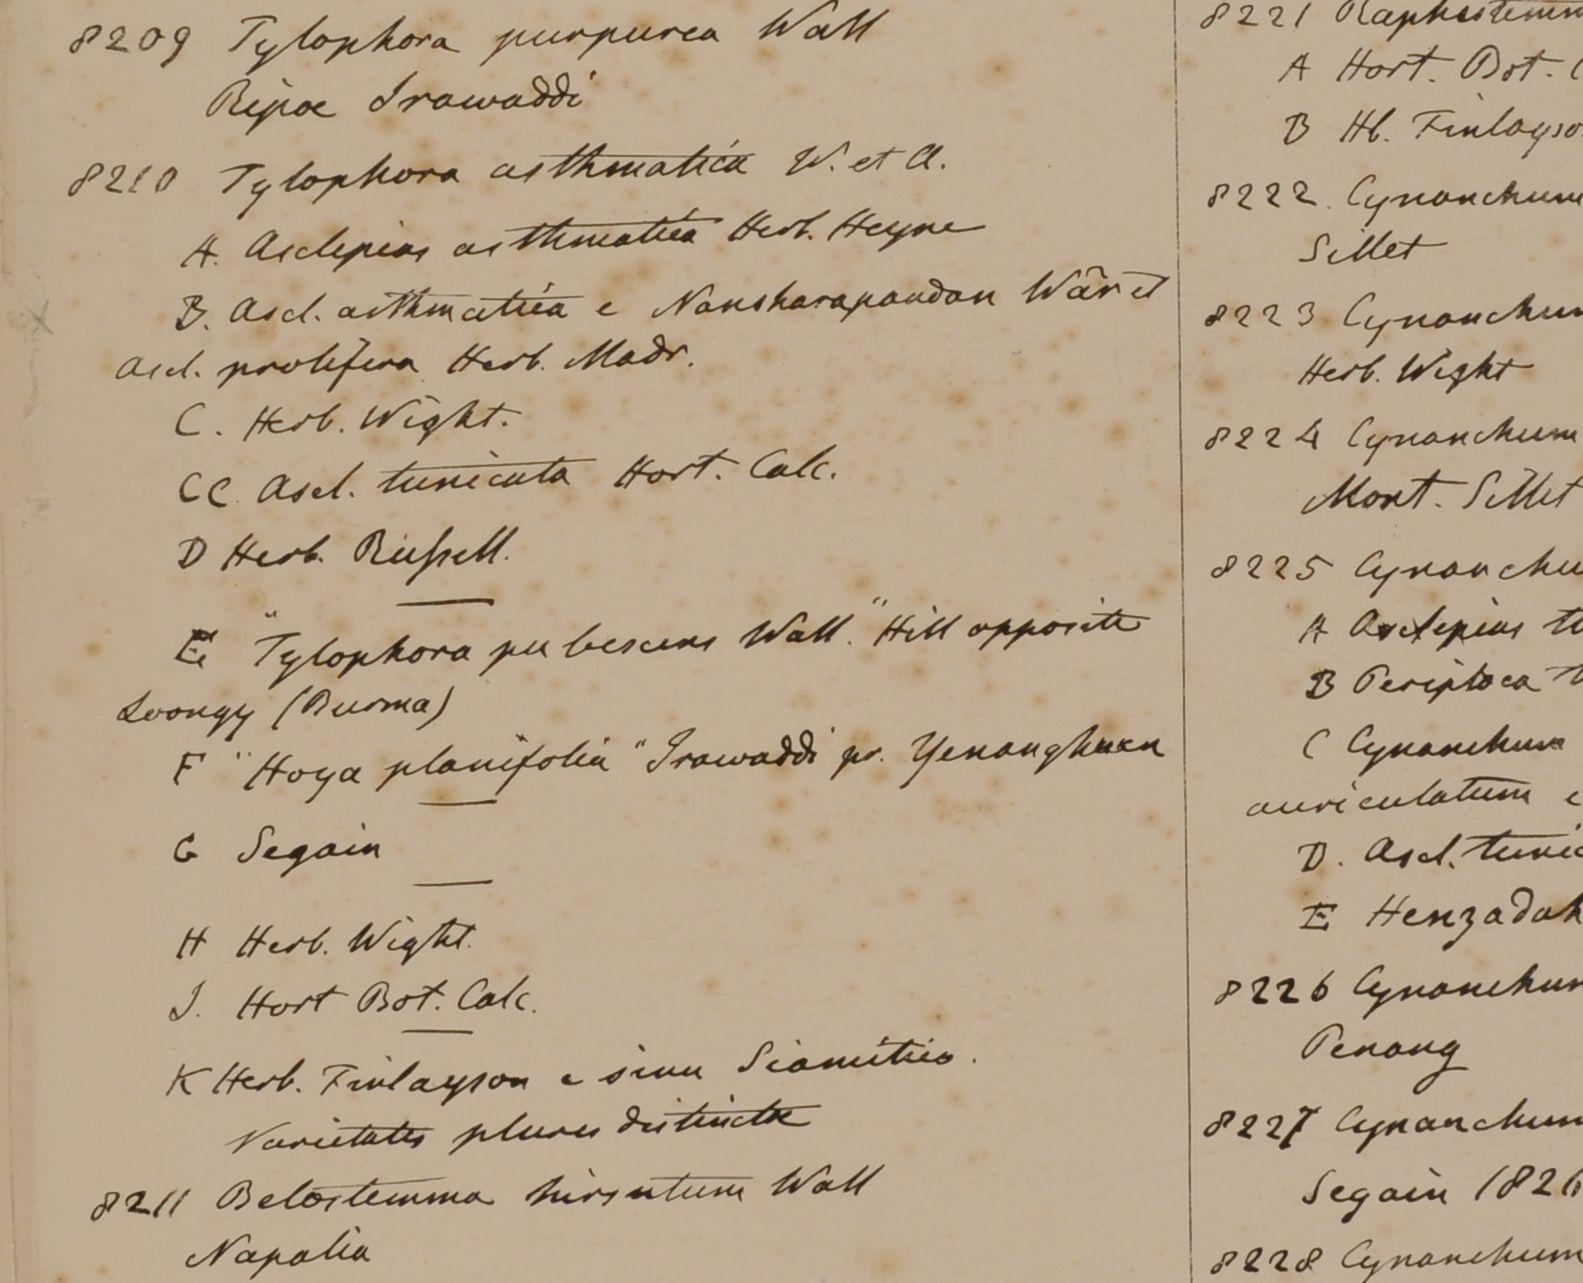 8209 Tylophora purpurea Wall
Ripae Irawaddi
8210 Tylophora asthmatica W. et A.
A. Asclepias asthmatica Herb. Heyne
B. Ascl. asthmatica e Nansharapandan et
Ascl. prolifera Herb. Madr.
C. Herb. Wight.
CC Ascl. tunicata Hort. Calc.
D Herb. Russell.
E "Tylophora pubescens Wall." Hill opposite
Loongy (Burma)
F "Hoya planifolia" Irawaddi pr. Yenanghuen
G Segain
H Herb. Wight.
I. Hort Bot. Calc.
K Herb. Finlayson e sinu Siamitico.
Varietates plures distinctae
8211 Belostemma hirsutum Wall
Napalia
8221 Raphistemm
A Hort. Bot. C
B Hb. Finlayso
8222. Cynanchum
Sillet
8223 Cynanchum
Herb. Wight
8224 Cynanchum
Mont. Sillet
8225 Cynanchu
A Asclepias tu
B Periploca t
C Cynanchum
auriculatum e
D. Ascl. tunic
E Henzadah
8226 Cynanchum
Penang
8227 Cynanchum
Segain 1826
8228 Cynanchum